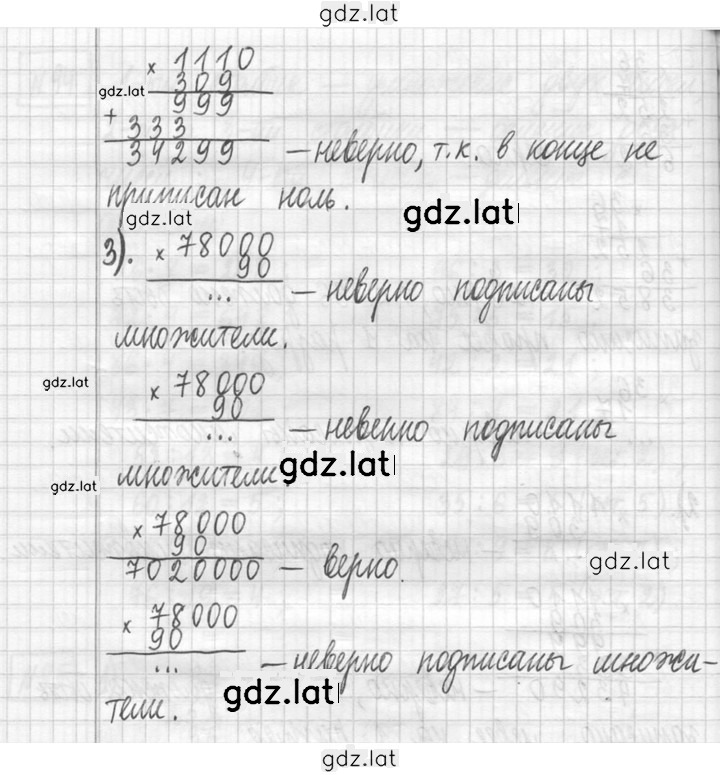 gdz.lat
× 1110
309
gdz.lat
999
+ 333
34299 – неверно, т.к. в конце не
приписан ноль.
gdz.lat
gdz.lat
3). × 78000
90
... – неверно подписаны
множители.
gdz.lat
× 78000
90
... – неверно подписаны
множители.
gdz.lat
gdz.lat
× 78000
90
7020000 – верно.
gdz.lat
× 78000
90
... – неверно подписаны множи-
тели.
gdz.lat
gdz.lat